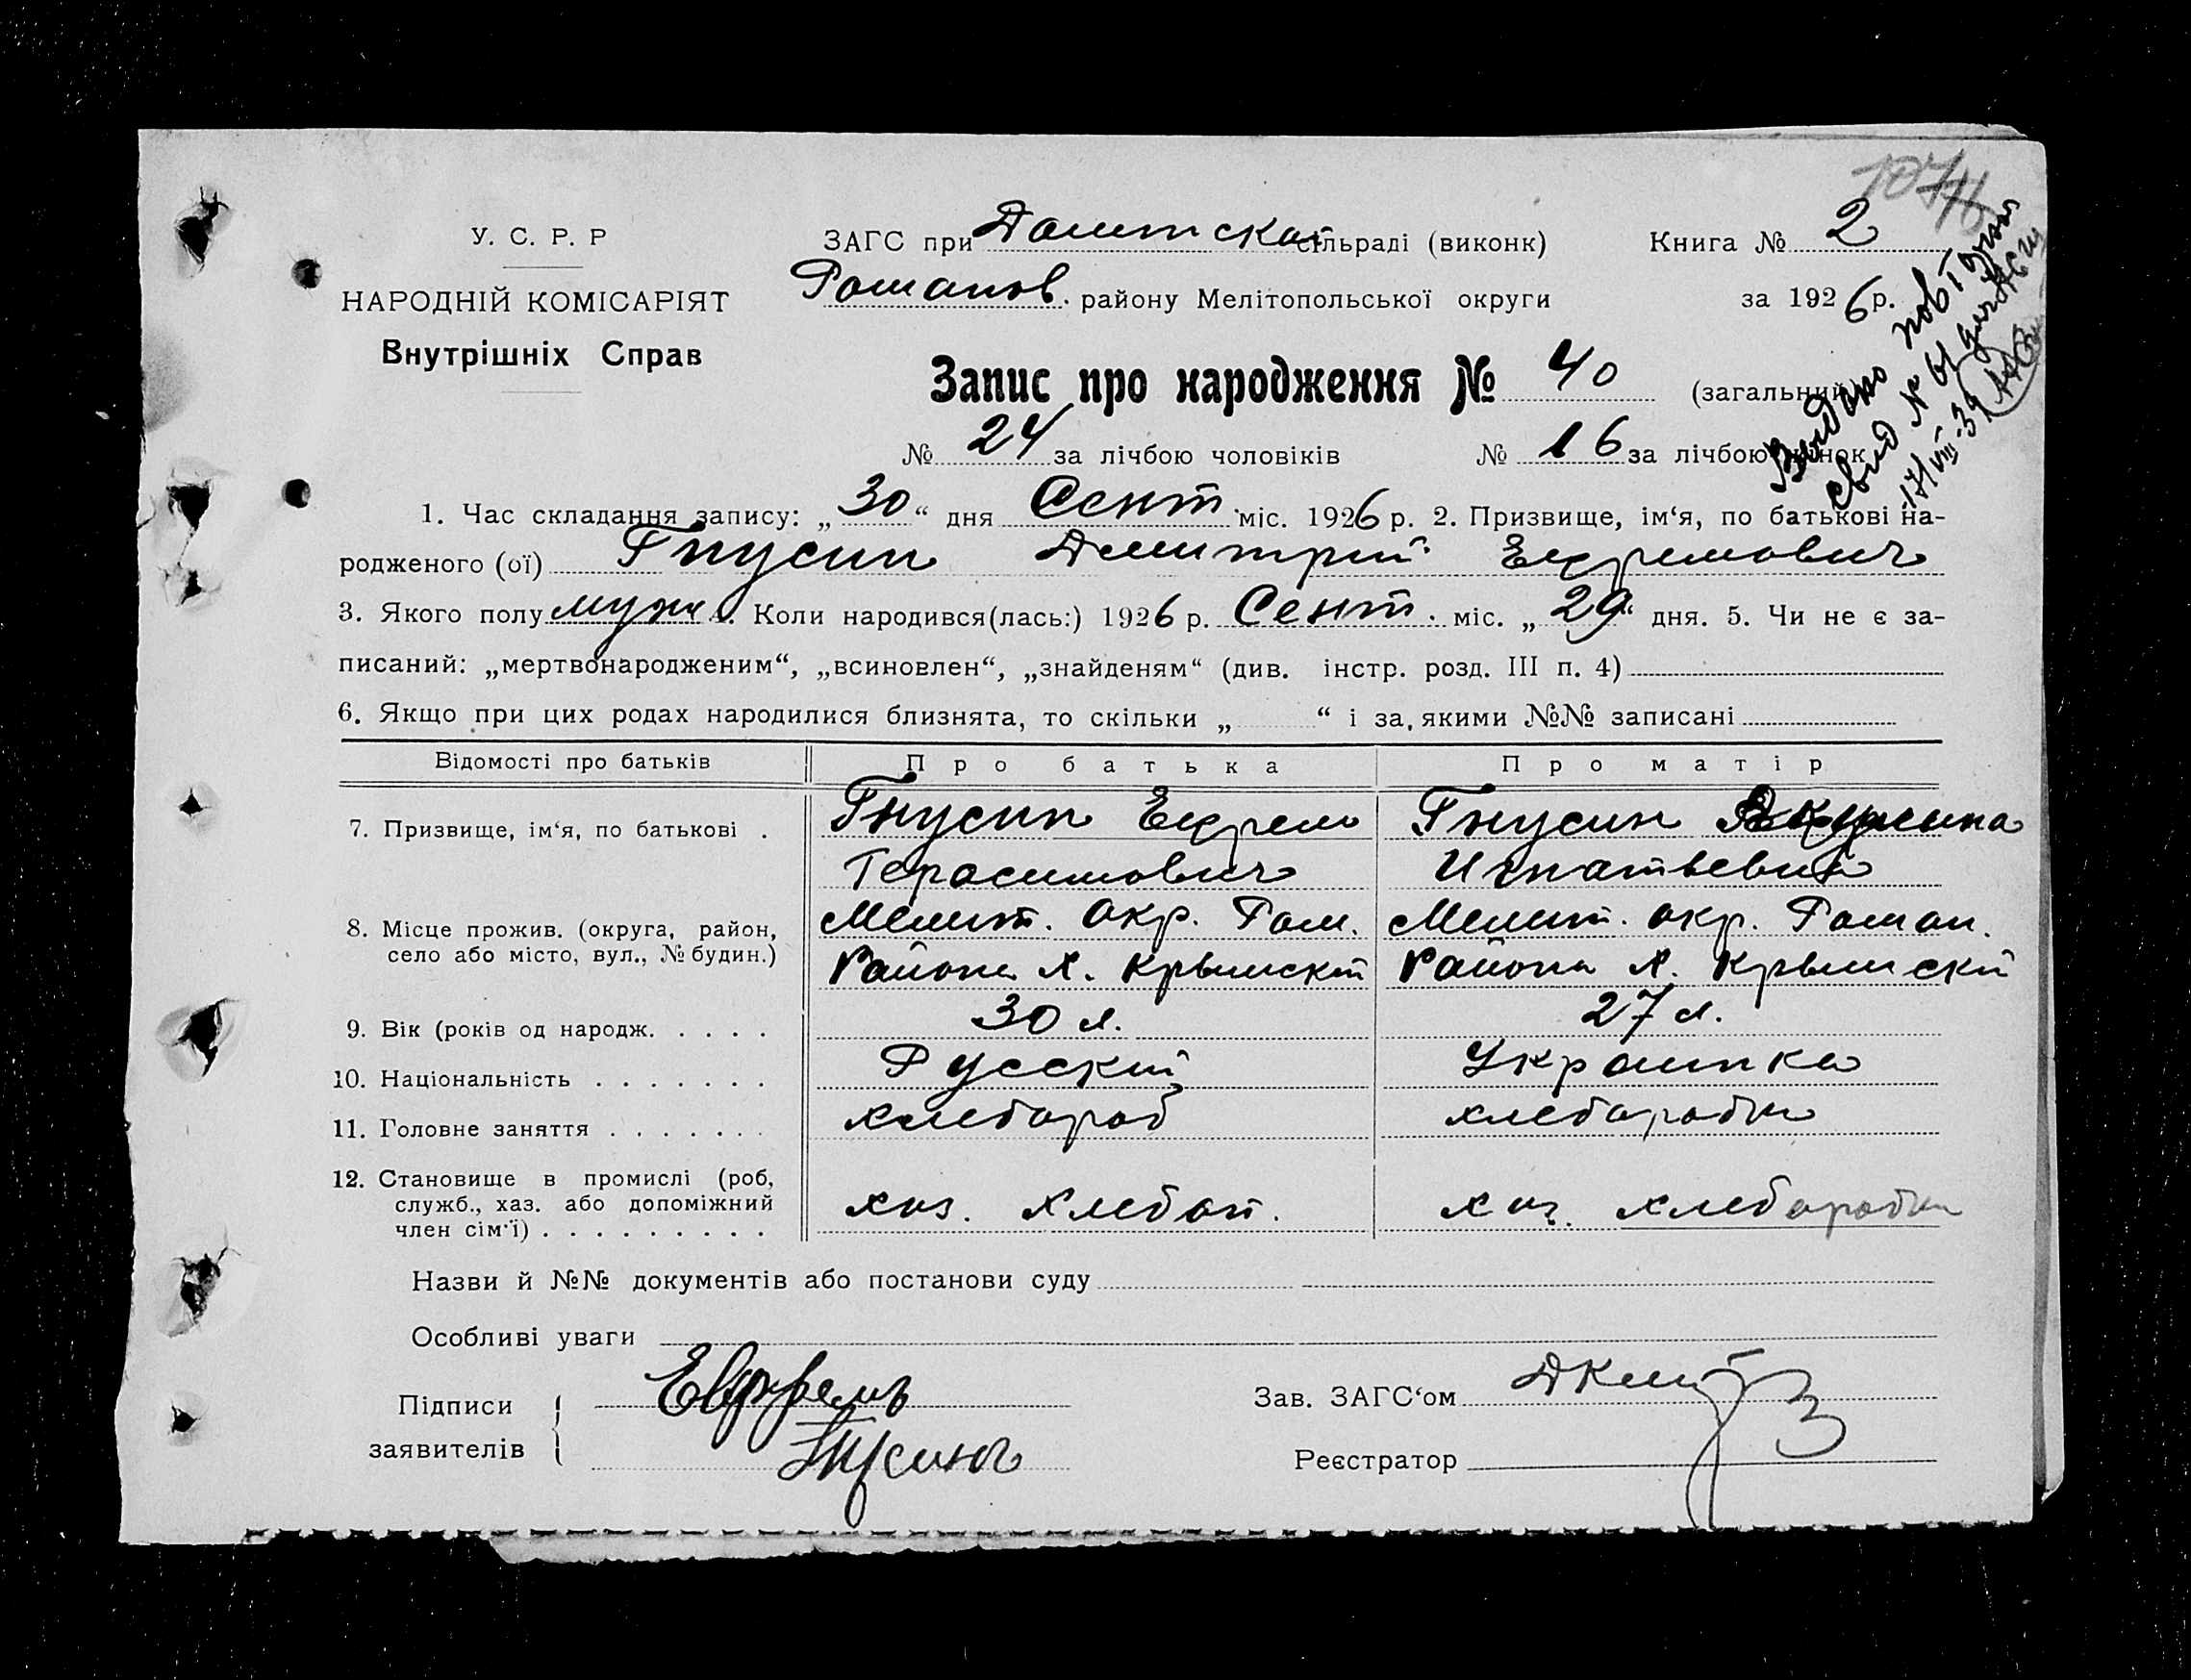 1074
У. С. Р. Р
НАРОДНІЙ КОМІСАРІЯТ
Внутрішніх Справ
ЗАГС при сільраді (виконк) Книга № 2
Романов. району Мелітопольської округи за 1926 р.
Запис про народження № 40 (загальний)
№ 24 за лічбою чоловіків № 16 за лічбою жінок
Выдано повторн
свид №
17/VIII-39
1. Час складання запису: „30“ дня Сент. міс. 1926 р. 2. Призвище, ім‘я, по батькові на-
родженого (ої) Гнусин Дмитрий Ефремович
3. Якого полу муж 4. Коли народився(лась:) 1926 р. Сент. міс. „29“ дня. 5. Чи не є за-
писаний: „мертвонародженим“, „всиновлен“, „знайденям“ (див. інстр. розд. III п. 4)
6. Якщо при цих родах народилися близнята, то скільки „ “ і за якими №№ записані
Відомості про батьків Про батька Про матір
7. Призвище, ім‘я, по батькові . Гнусин Ефрем Гнусин
Герасимович Игнатьевна
8. Місце прожив. (округа, район, Мелит. окр. Ром. Мелит. окр. Роман.
село або місто, вул., № будин.) Района х. Крымский Района х. Крымский
9. Вік (років од народж. . . . . 30 л. 27 л.
10. Національність . . . . . . . Русский Украинка
11. Головне заняття . . . . . . . хлебороб хлеборобка
12. Становище в промислі (роб,
служб., хаз. або допоміжний хоз. хоз. хлеборобка
член сім‘ї) . . . . . . . . .
Назви й №№ документів або постанови суду
Особливі уваги
Підписи Евфремъ Зав. ЗАГС‘ом
заявителів Гнусинъ Реєстратор